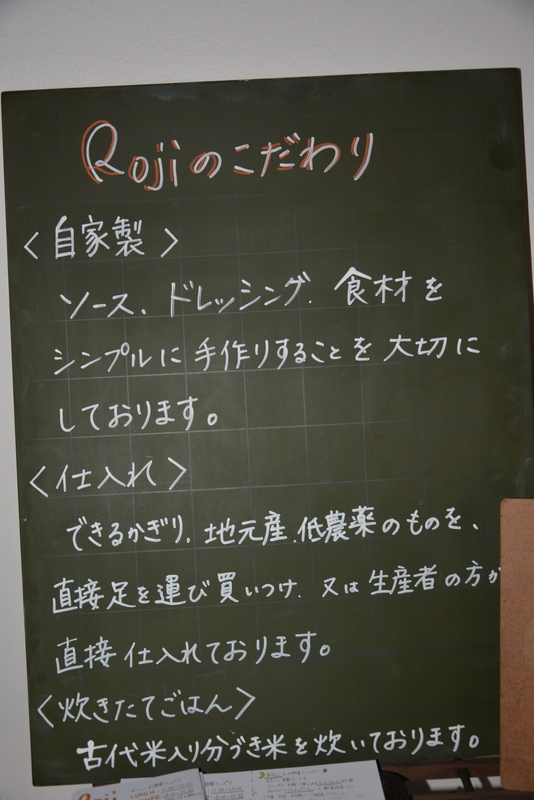 Rojiのこだわり
〈自家製〉
ソース、ドレッシング、食材を
シンプルに手作りすることを大切に
しております。
〈仕入れ〉
できるかぎり、地元産、低農薬のものを、
直接足を運び買いつけ、又は生産者の方が
直接仕入れております。
〈炊きたてごはん〉
古代米入り分づき米を炊いております。
Roji